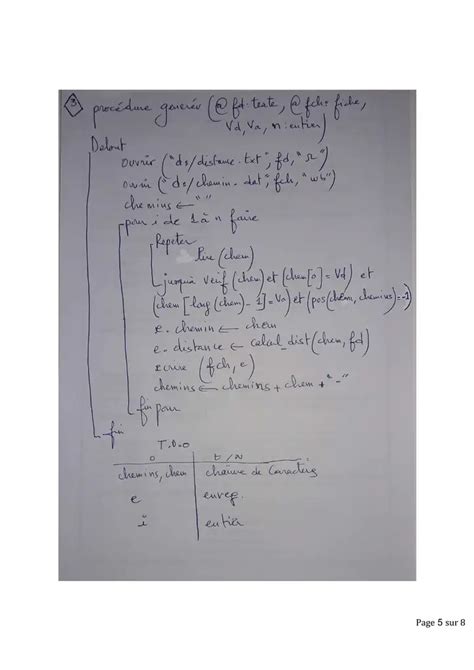 3
procédure generer (@ fd: texte, @ fch: fiche,
Vd, Va, n: entier)
Debut
ouvrir ("ds/distance.txt", fd, "r")
ouvrir ("ds/chemin.dat", fch, "wb")
chemins ← ""
pour i de 1 à n faire
Repeter
lire (chem)
jusqu'à verif (chem) et (chem[0] = Vd) et
(chem [long (chem) - 1] = Va) et (pos(chem, chemins) = -1)
e. chemin ← chem
e. distance ← calcul_dist (chem, fd)
ecrire (fch, e)
chemins ← chemins + chem + "-"
fin pour
fin
T.D.O
O T/N
chemins, chem chaine de caractères
e enreg.
i entier
Page 5 sur 8